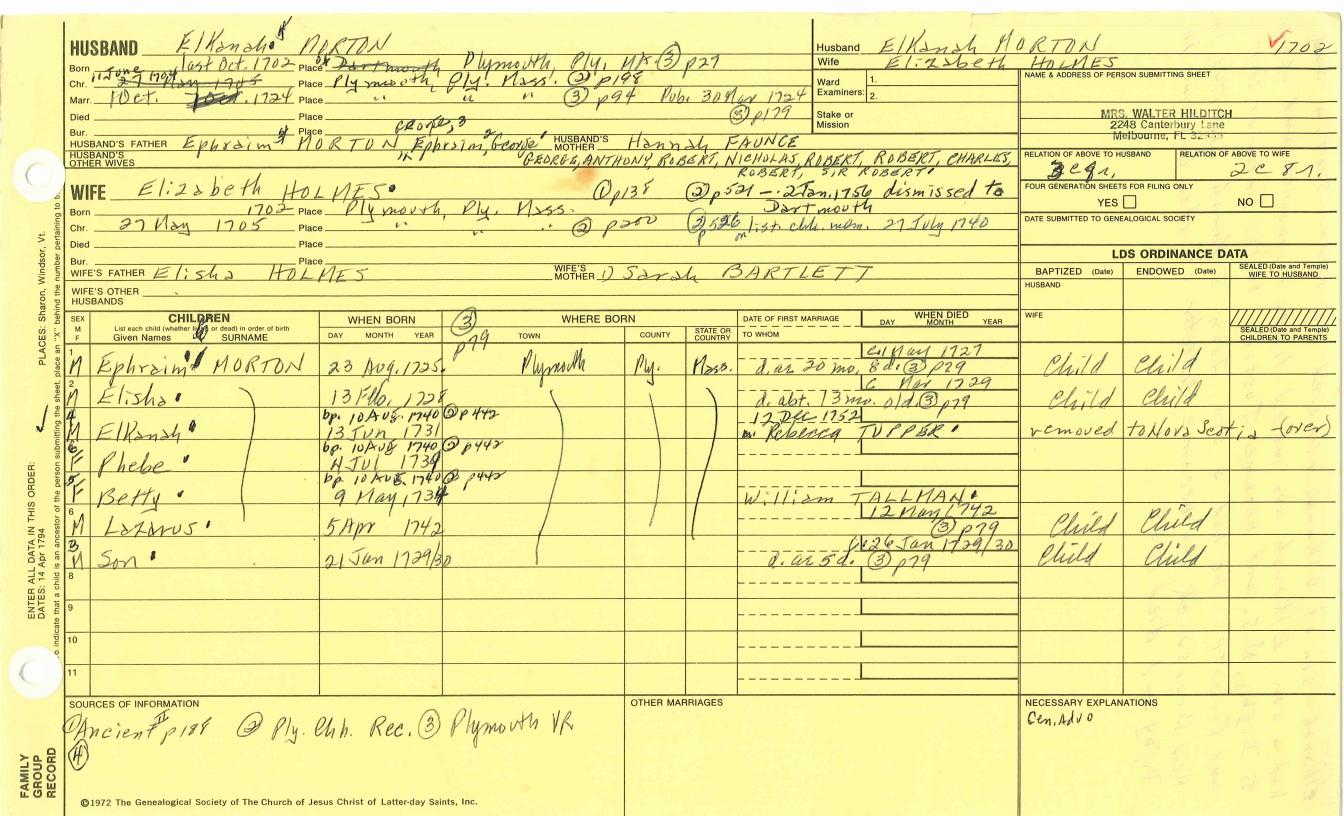 HUSBAND ElKanah MORTON
Born last Oct. 1702 Place Dartmouth Plymouth, Ply, MA ③ p27
Chr. 11 June 1704 27 May 1705 Place Plymouth, Ply. Mass. ② p198
Marr. 1 Oct. 7 Oct. 1724 Place " " " ③ p94 Pub. 30 Mar 1724
Died Place ③ p179
Bur. Place George, 3
HUSBAND'S FATHER Ephraim MORTON, Ephraim, George HUSBAND'S MOTHER Hannah FAUNCE
HUSBAND'S OTHER WIVES GEORGE, ANTHONY, ROBERT, NICHOLAS, ROBERT, ROBERT, CHARLES,
ROBERT, SIR ROBERT
WIFE Elizabeth HOLMES ① p138 ② p521 - 2 Jan. 1756 dismissed to
Born 1702 Place Plymouth, Ply. Mass. Dartmouth
Chr. 27 May 1705 Place " " ② p200 ② p526 on list chh. mem. 27 July 1740
Died Place
Bur. Place
WIFE'S FATHER Elisha HOLMES WIFE'S MOTHER 1) Sarah BARTLETT
WIFE'S OTHER HUSBANDS
Husband ElKanah MORTON 1702
Wife Elizabeth HOLMES
Ward Examiners: 1.
2.
Stake or Mission
NAME & ADDRESS OF PERSON SUBMITTING SHEET
MRS. WALTER HILDITCH
2248 Canterbury Lane
Melbourne, FL
RELATION OF ABOVE TO HUSBAND RELATION OF ABOVE TO WIFE
2c 8r.
FOUR GENERATION SHEETS FOR FILING ONLY
YES NO
DATE SUBMITTED TO GENEALOGICAL SOCIETY
LDS ORDINANCE DATA
BAPTIZED (Date) ENDOWED (Date) SEALED (Date and Temple) WIFE TO HUSBAND
HUSBAND
WIFE
SEALED (Date and Temple) CHILDREN TO PARENTS
SEX M F CHILDREN WHEN BORN ③ p79 WHERE BORN DATE OF FIRST MARRIAGE WHEN DIED
List each child (whether living or dead) in order of birth
Given Names SURNAME DAY MONTH YEAR TOWN COUNTY STATE OR COUNTRY TO WHOM DAY MONTH YEAR
1 M Ephraim MORTON 23 Aug. 1725 Plymouth Ply. Mass. d. ae 20 mo. 8 d. ③ p79 May 1727 Child Child
2 M Elisha 13 Feb. 1728 d. abt. 13 mo. old ③ p79 Mar 1729 Child Child
4 M ElKanah bp. 10 AUG. 1740 ② p442 13 Jun 1731 12 DEC 1752 m. Rebecca TUPPER removed to Nova Scotia - (over)
6 F Phebe bp. 10 AUG 1740 ② p442 Jul
5 F Betty bp. 10 AUG. 1740 ② p442 9 May 1734 William TALLMAN
6 M Lazarus 5 Apr 1742 12 May 1742 ③ p79 Child Child
3 M Son 21 Jan 1729/30 d. ae 5 d. ③ p79 26 Jan 1729/30 Child Child
8
9
10
11
SOURCES OF INFORMATION OTHER MARRIAGES NECESSARY EXPLANATIONS
① Ancient II p188 ② Ply. Chh. Rec. ③ Plymouth VR
④
Gen. Advo
©1972 The Genealogical Society of The Church of Jesus Christ of Latter-day Saints, Inc.
FAMILY GROUP RECORD
ENTER ALL DATA IN THIS ORDER:
DATES: 14 Apr 1794
PLACES: Sharon, Windsor, Vt.
to indicate that a child is an ancestor of the person submitting the sheet, place an "X" behind the number pertaining to